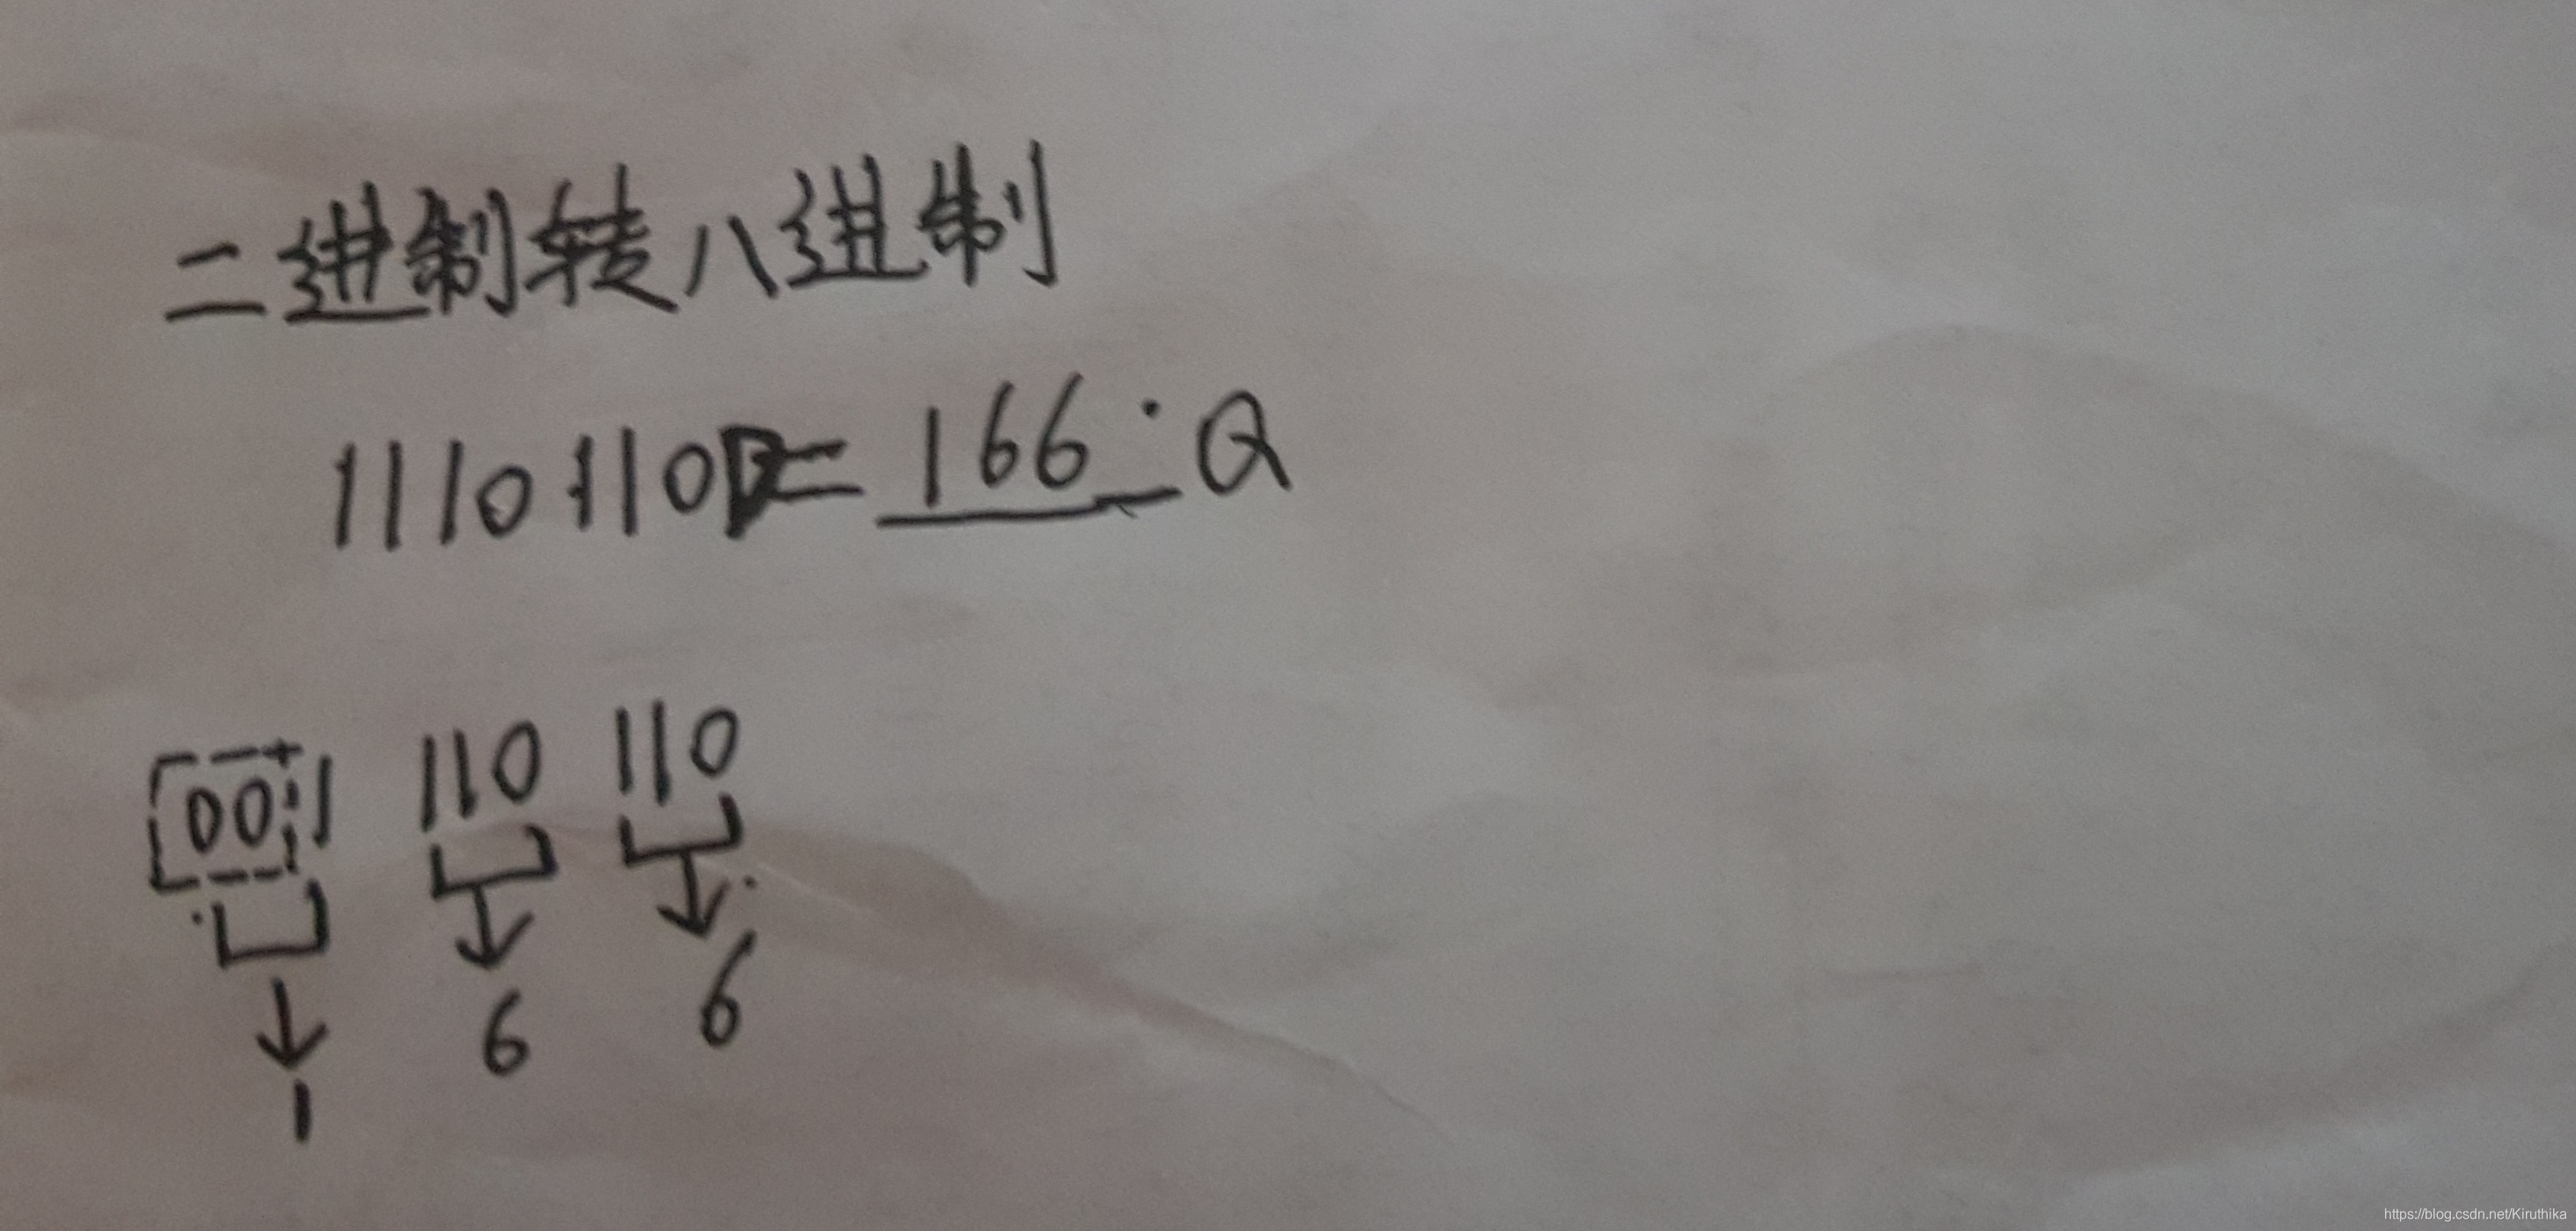 二进制转八进制
1110110B=166Q
001 110 110
1 6 6
https://blog.csdn.net/Kiruthika